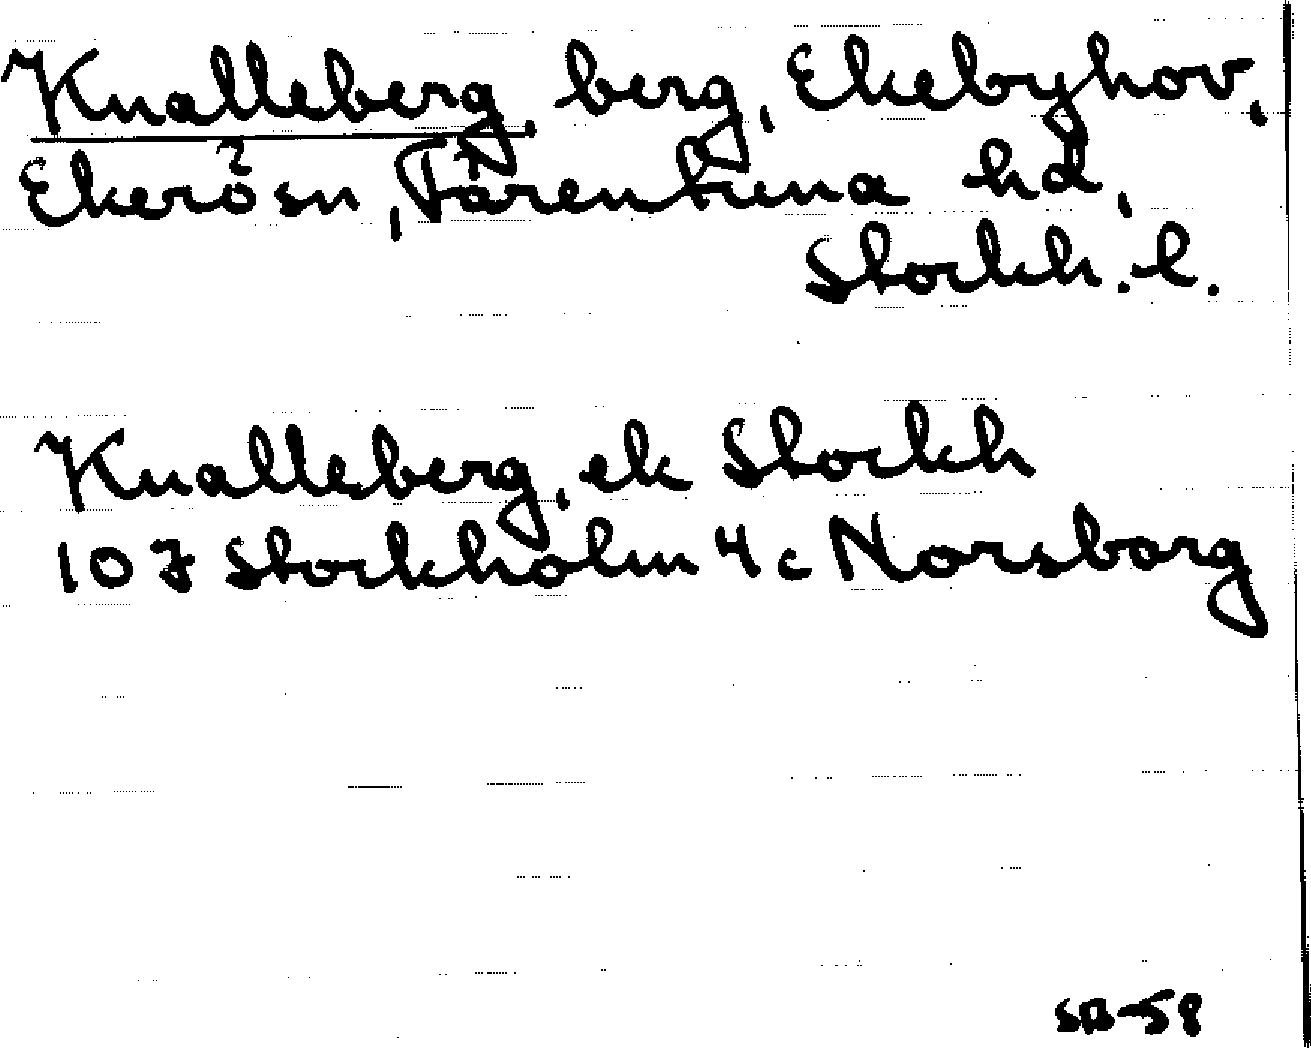 Knalleberg, berg, Ekebyhov,
Ekerö sn, Färentuna hd,
Stockh. l.
Knalleberg, ek Stockh
10J Stockholm 4c Norsborg
SB-58